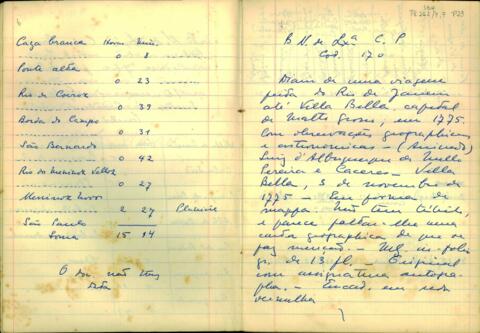 Caza branca Horas Min.
0 8
Ponte alta
0 23
Rio de Couros
0 39
Borda do Campo
0 31
São Bernardo
0 42
Rio dos Meninos Velho
0 27
Meninos Novo
2 27
São Paulo
Soma 15 14
O ms. não tem
data
B N. de Lxª C. P.
Cod. 170
Diario de uma viagem
feita do Rio de Janeiro
até Villa Bella, capital
de Matto Grosso, em 1775.
Com observações geographicas
e astronomicas – (Assinado)
Luiz d'Albuquerque de Mello
Pereira e Caceres – Villa
Bella, 3 de novembro de
1775 – Em forma de
mappa. Não tem titulo,
e parece faltar-lhe uma
carta geographica de que se
faz menção. – Ms. in-folio
gr. de 13 fl. – Original
com assignatura autogra-
pha. – Encad. em seda
vermelha